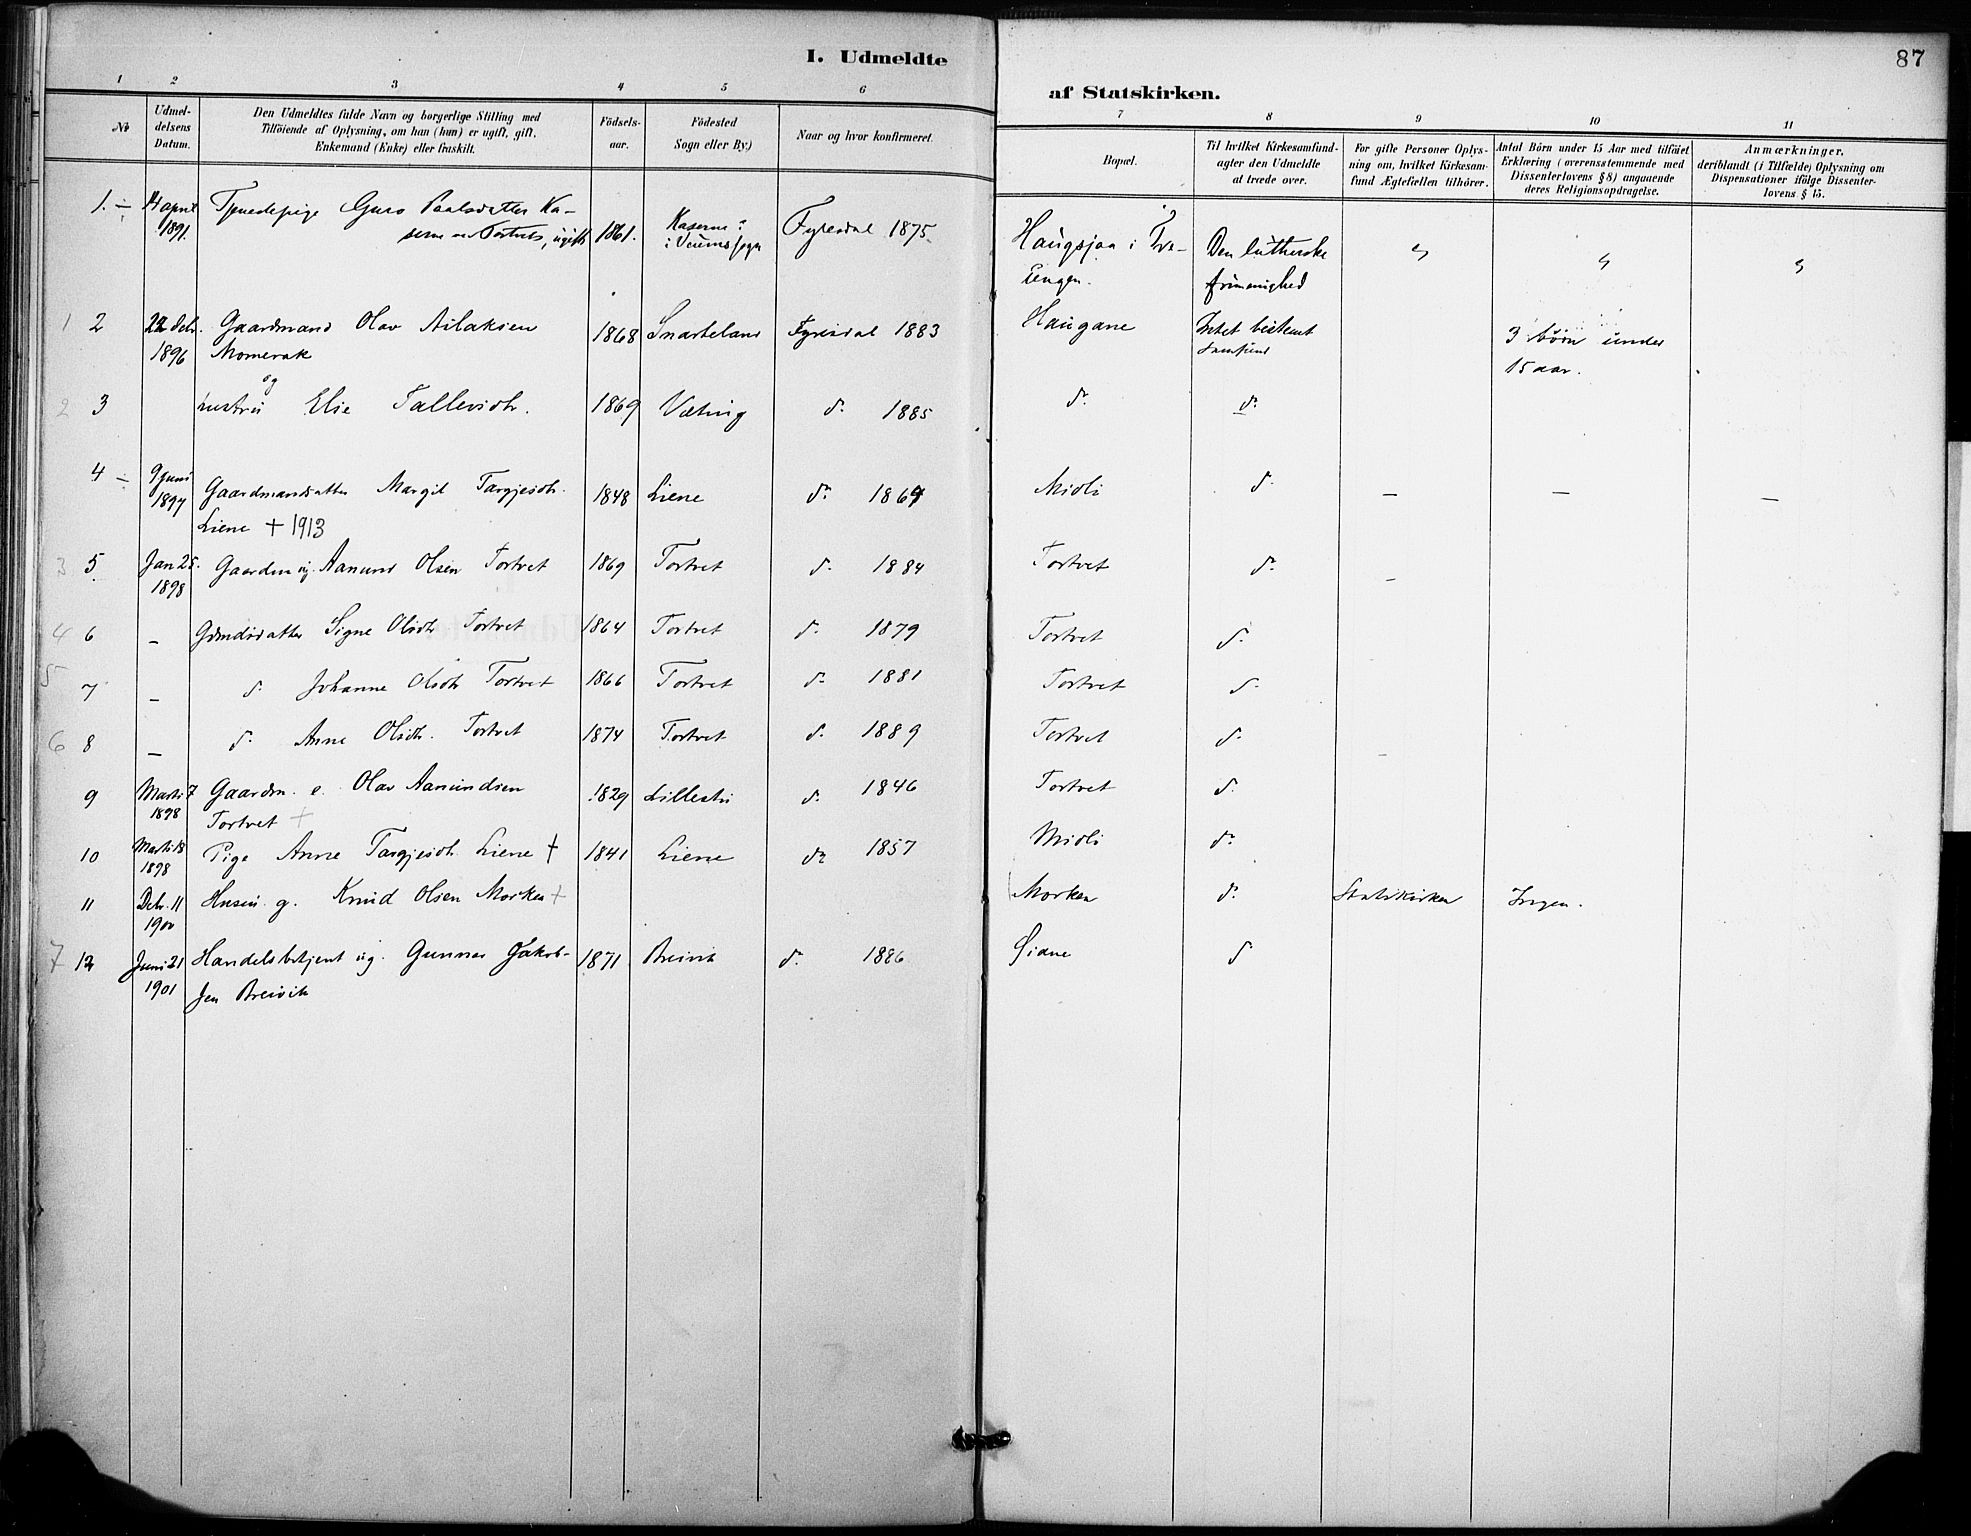 I. Udmeldte
af Statskirken.
87
1 2 3 4 5 6
7 8 9 10 11
No
Udmel-
delsens
Datum.
Den Udmeldtes fulde Navn og borgerlige Stilling med
Tilföiende af Oplysning, om han (hun) er ugift, gift,
Enkemand (Enke) eller fraskilt.
Födsels-
aar.
Födested
Sogn eller By.)
Naar og hvor konfirmeret.
Bopæl.
Til hvilket Kirkesamfund-
agter den Udmeldte
at træde over.
For gifte Personer Oplys-
ning om, hvilket Kirkesam-
fund Ægtefællen tilhörer.
Antal Börn under 15 Aar med tilföiet
Erklæring (overensstemmende med
Dissenterlovens § 8) angaaende
deres Religionsopdragelse.
Anmærkninger,
deriblandt (i Tilfælde) Oplysning om
Dispensationer ifölge Dissenter-
lovens § 15.
1. 14 april Tjenestepige Guro Paalsdatter Ka-
1891. Tortveit, ugift 1861. i Veums sogn Fyresdal 1875. Haugsjaa i Tre- Den lutherske
ungen. frimenighed
1 2 22 debr. Gaardmand Olav Aslaksen 1868 Snarteland Fyresdal 1883 Haugane Intet bestemt 3 börn under
1896 Momrak samfund 15 aar.
og
2 3 hustru Else Tallevsdtr. 1869 Væting do 1885 do do
4 9 juni Gaardmandsdatter Margit Targjesdtr. 1848 Liene do 1864 Midli do — — —
1897 Liene + 1913
3 5. Jan 25. Gaardm ug. Aanund Olsen Tortvet 1869 Tortvet do 1884 Tortvet do –
1898
4 6 – Gdmdsdatter Signe Olsdtr Tortvet 1864 Tortvet do 1879 Tortvet do
5 7 – do Johanne Olsdtr Tortvet 1866 Tortvet do 1881 Tortvet do
6 8 – do Anne Olsdtr. Tortvet 1874 Tortvet do 1889 Tortvet do
9 Marts 7 Gaardm. e. Olav Aanundsen 1829 Lillestu do 1846 Tortvet do
1898 Tortvet +
10 Marts 18 Pige Anne Targjesdtr. Liene + 1841 Liene do 1857 Midli do
1898
11 Debr. 11 Husm. g. Knud Olsen Morken + Morken do Statskirken Ingen.
1900
7 12 Juni 21 Handelsbetjent ug. Gunnar Jakob- 1871 Breivik do 1886 Sidne do
1901 sen Breivik